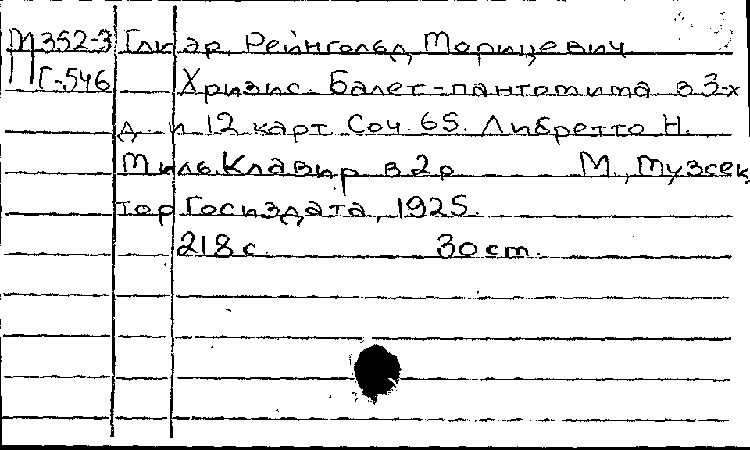 М352-3 Глиэр, Рейнгольд Морицевич
Г-546 Хризис. Балет-пантомима в 3-х
д. и 12 карт. Соч. 65. Либретто Н.
Миль. Клавир в 2 р М., Музсек
тор Госиздата, 1925.
218 с. 30 ст.